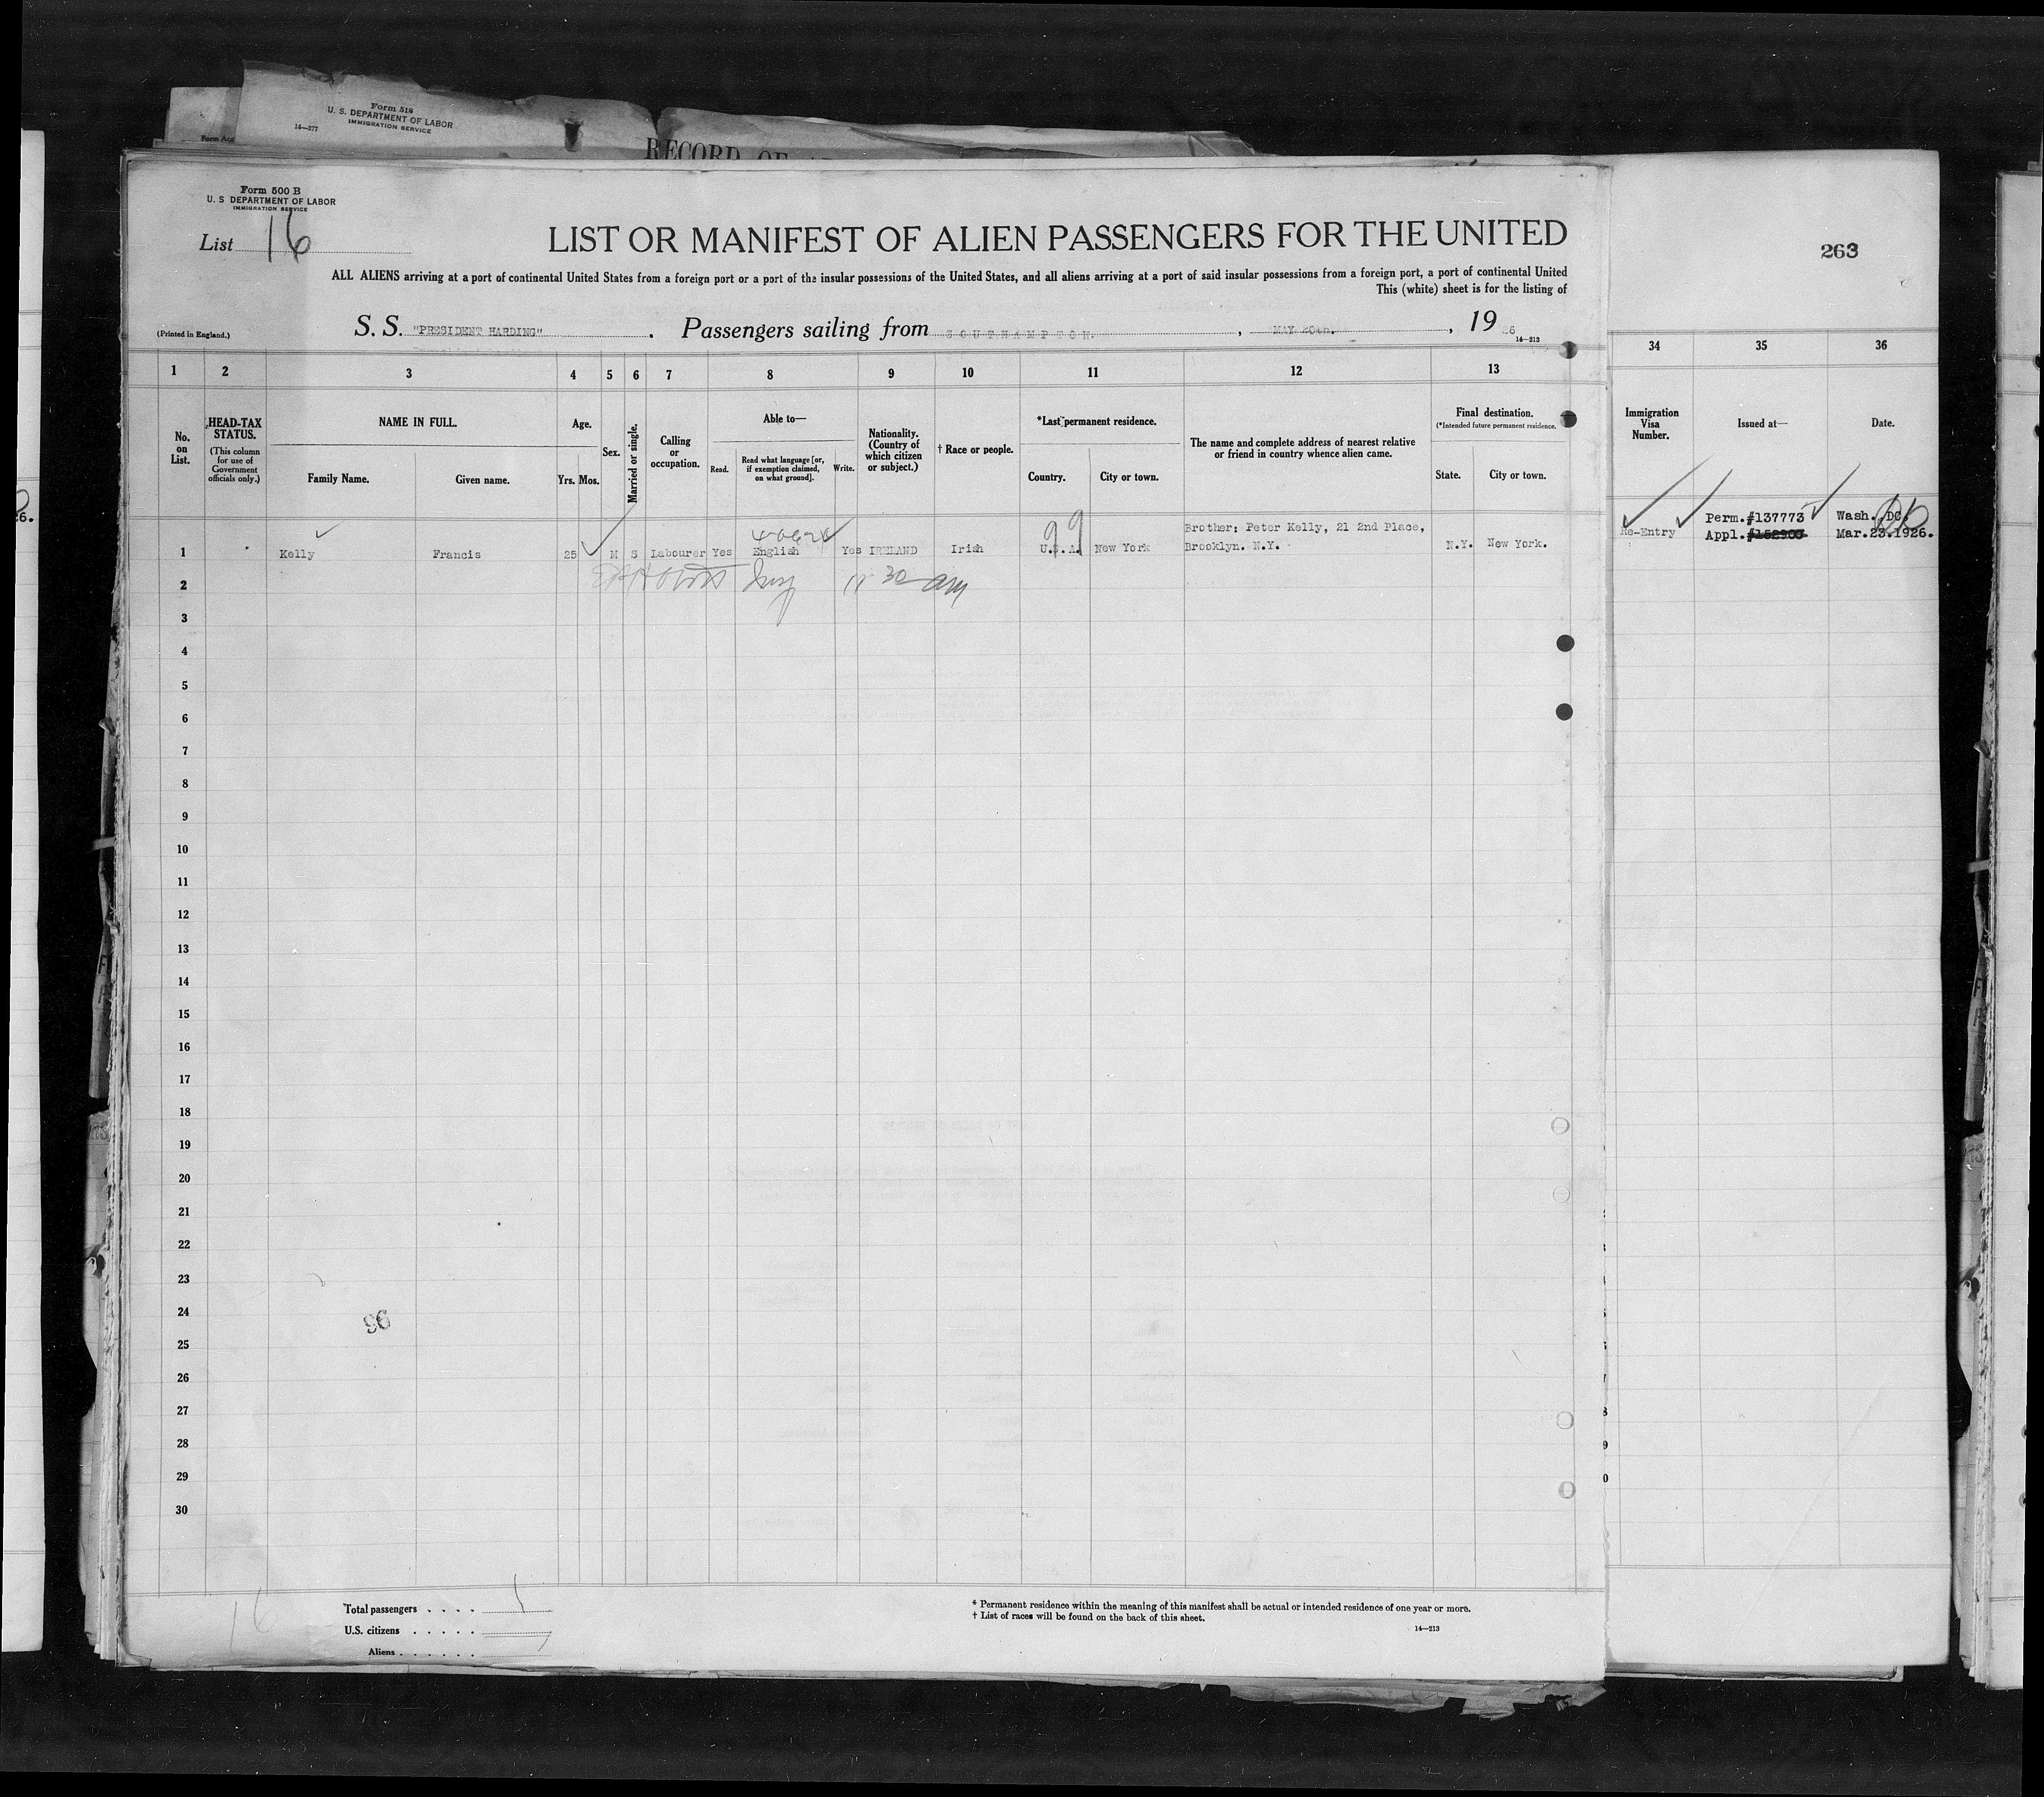 Form 518
U. S. DEPARTMENT OF LABOR
IMMIGRATION SERVICE
14—377
RECORD OF
Form 500 B
U. S DEPARTMENT OF LABOR
IMMIGRATION SERVICE
List 16
LIST OR MANIFEST OF ALIEN PASSENGERS FOR THE UNITED
263
ALL ALIENS arriving at a port of continental United States from a foreign port or a port of the insular possessions of the United States, and all aliens arriving at a port of said insular possessions from a foreign port, a port of continental United
This (white) sheet is for the listing of
(Printed in England.)
S. S. "PRESIDENT HARDING" . Passengers sailing from SOUTHAMPTON. , MAY 20th. , 19 26
14—213
1 2 3 4 5 6 7 8 9 10 11 12 13 34 35 36
No. on List.
HEAD-TAX STATUS.
(This column for use of Government officials only.)
NAME IN FULL.
Family Name. Given name.
Age.
Yrs. Mos.
Sex.
Married or single.
Calling or occupation.
Able to—
Read. Read what language [or, if exemption claimed, on what ground]. Write.
Nationality. (Country of which citizen or subject.)
† Race or people.
*Last permanent residence.
Country. City or town.
The name and complete address of nearest relative or friend in country whence alien came.
Final destination.
(*Intended future permanent residence.
State. City or town.
Immigration Visa Number.
Issued at—
Date.
26.
1 Kelly Francis 25 M S Labourer Yes English Yes IRELAND Irish U.S.A. New York Brother: Peter Kelly, 21 2nd Place,
Brooklyn. N.Y. N.Y. New York.
Re-Entry Perm.#137773 Wash. DC.
Appl. Mar.23.1926.
99
2
11 30 am
3
4
5
6
7
8
9
10
11
12
13
14
15
16
17
18
19
20
21
22
23
24
96
25
26
27
28
29
30
16
Total passengers . . . . 1
U.S. citizens . . . . .
Aliens . . . . . . 1
* Permanent residence within the meaning of this manifest shall be actual or intended residence of one year or more.
† List of races will be found on the back of this sheet.
14—213